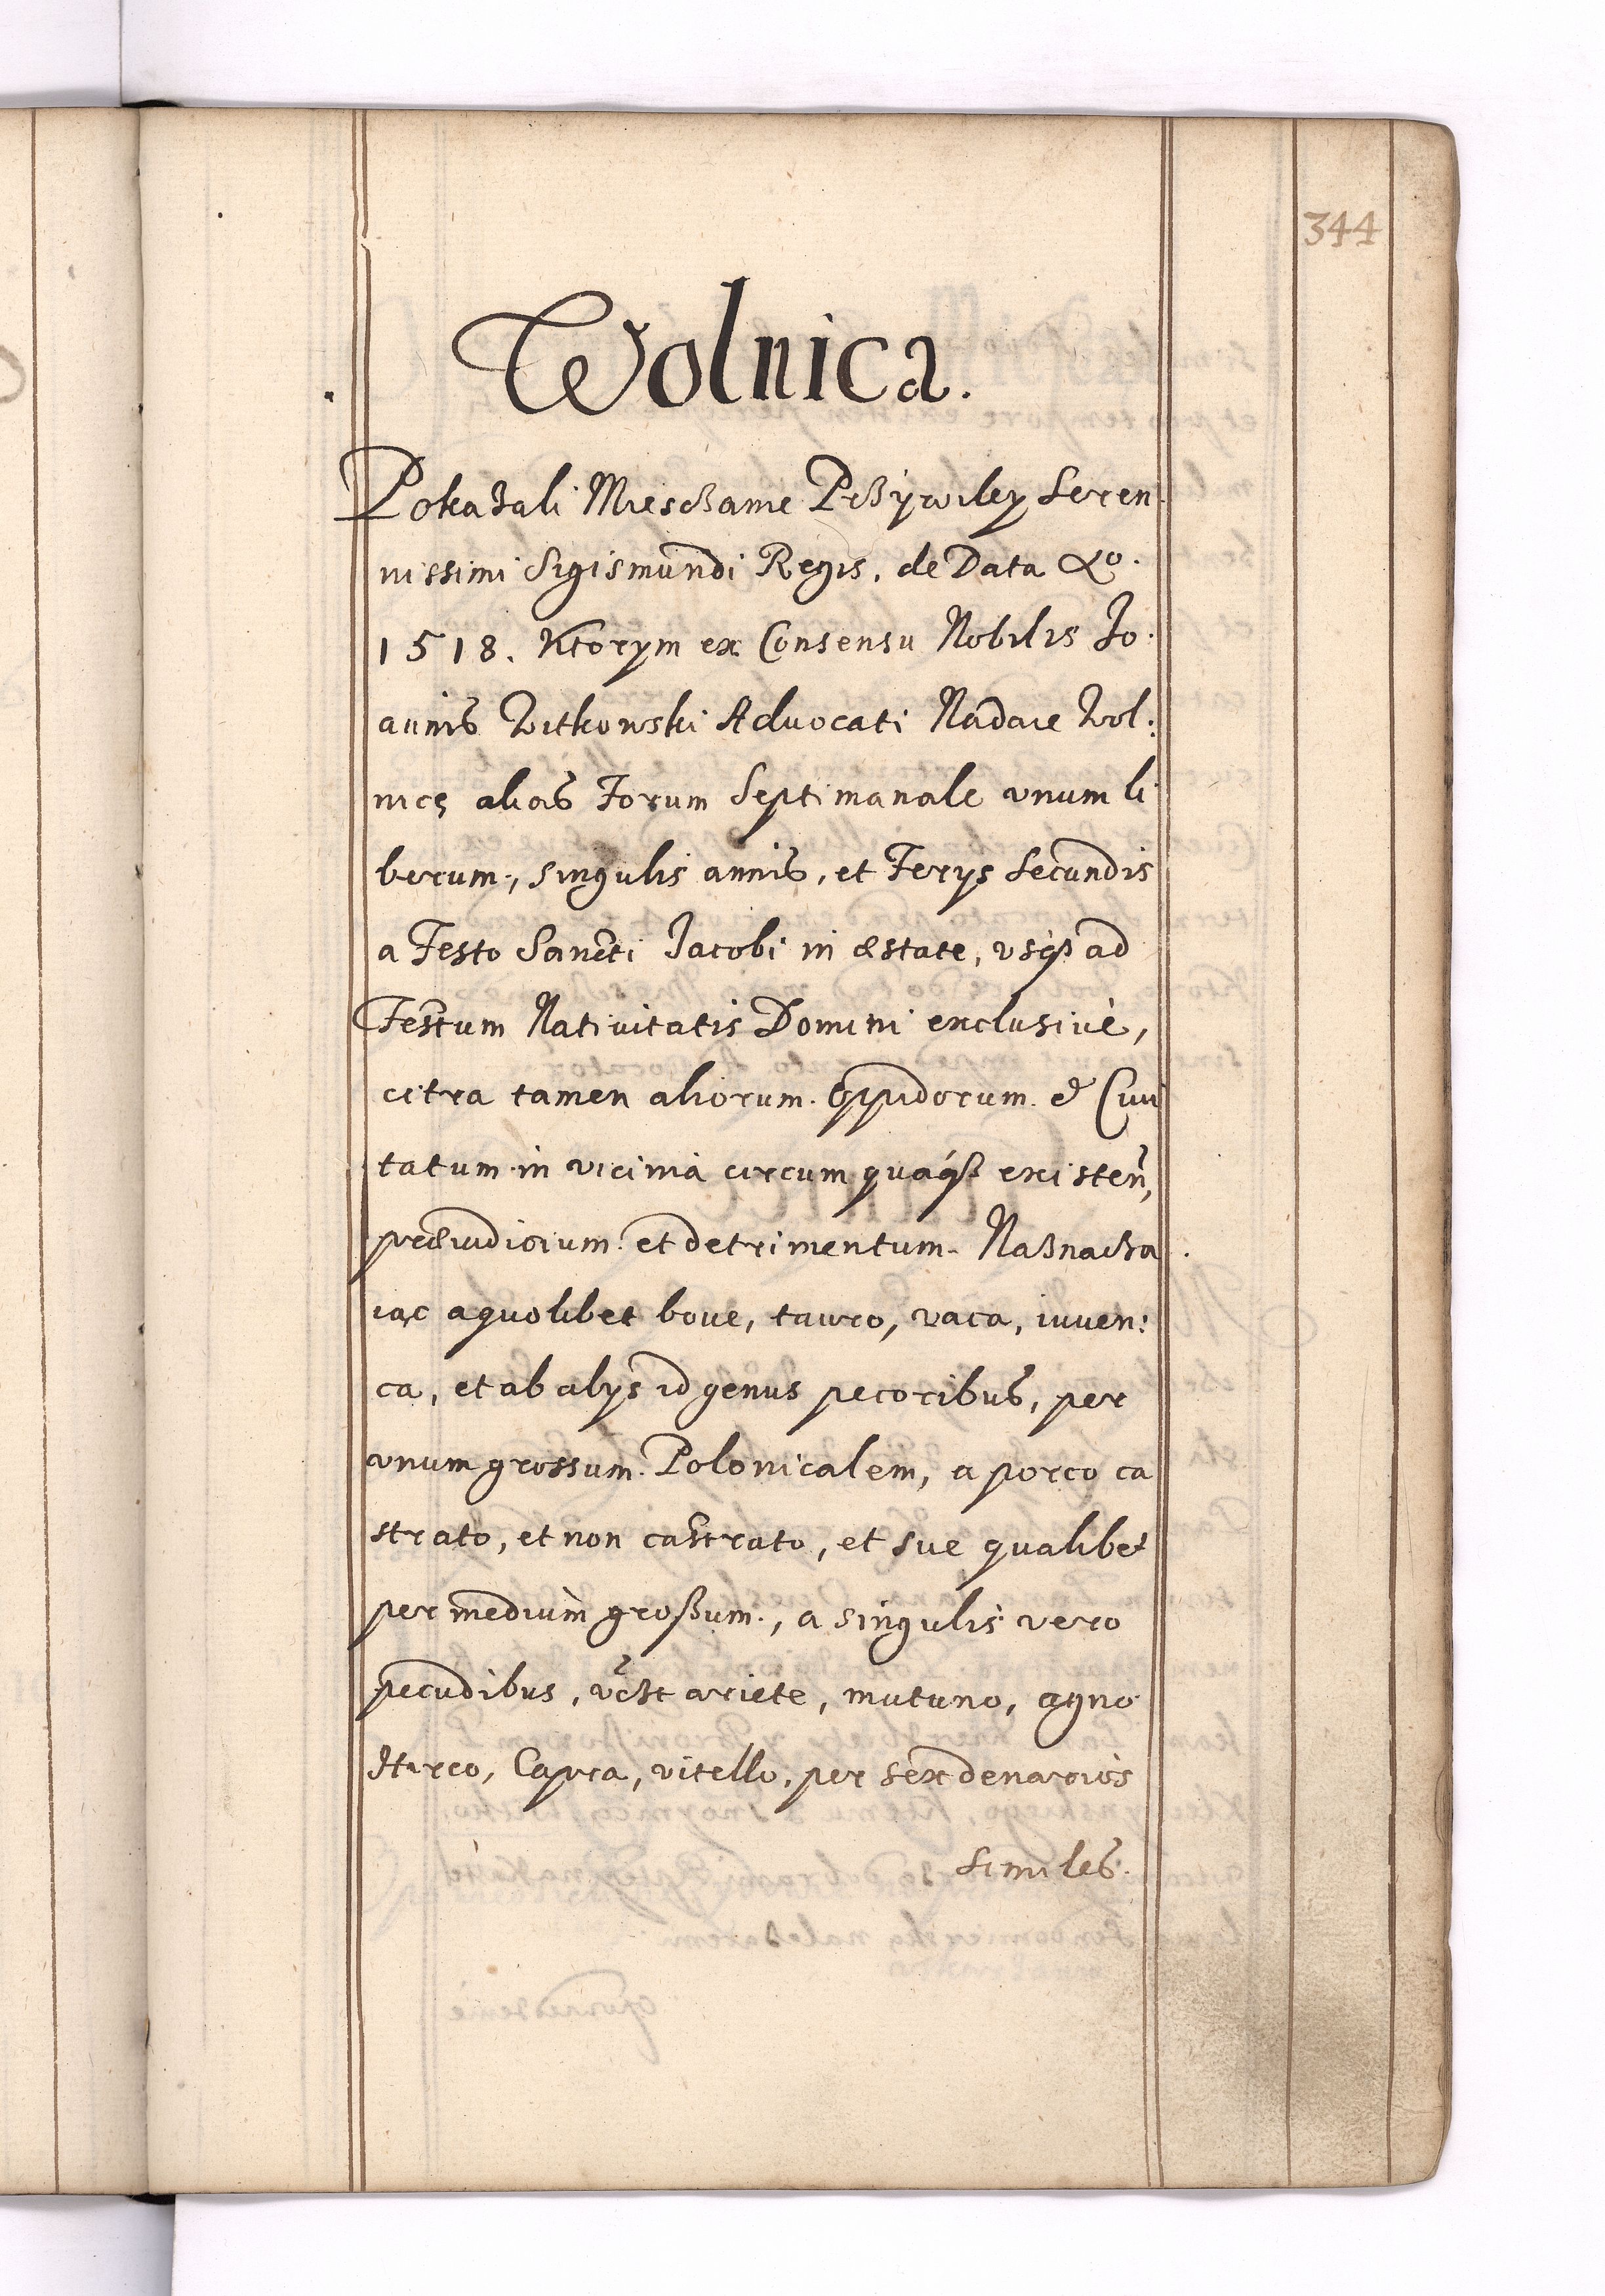 344
Wolnica.
Pokazali Miesczanie Przywiley Seren
nissimi Sigismundi Regis, de Data Ao.
1518. Ktorym ex Consensu Nobilis Jo:
annis Witkowski Aduocati Nadaie Wol:
nicę alias Forum Septimanale vnum li
berum, singulis annis, et Ferys Secundis
a Festo Sancti Jacobi in æstate, vsq3 ad
Festum Natiuitatis Domini exclusiuè,
citra tamen aliorum Oppidorum & Ciui
tatum in vicinia circum quaq3 existen,
præiudicium et detrimentum. Naznacza
iąc a quolibet boue, tauro, vaca, iuuen:
ca, et ab alys id genus pecoribus, per
vnum grossum Polonicalem, a porco ca
strato, et non castrato, et sue qualibet
per medium großum, a singulis vero
pecudibus, vt ariete, mutuno, agno
Hirco, Capra, vitello, per sex denarios
similes.